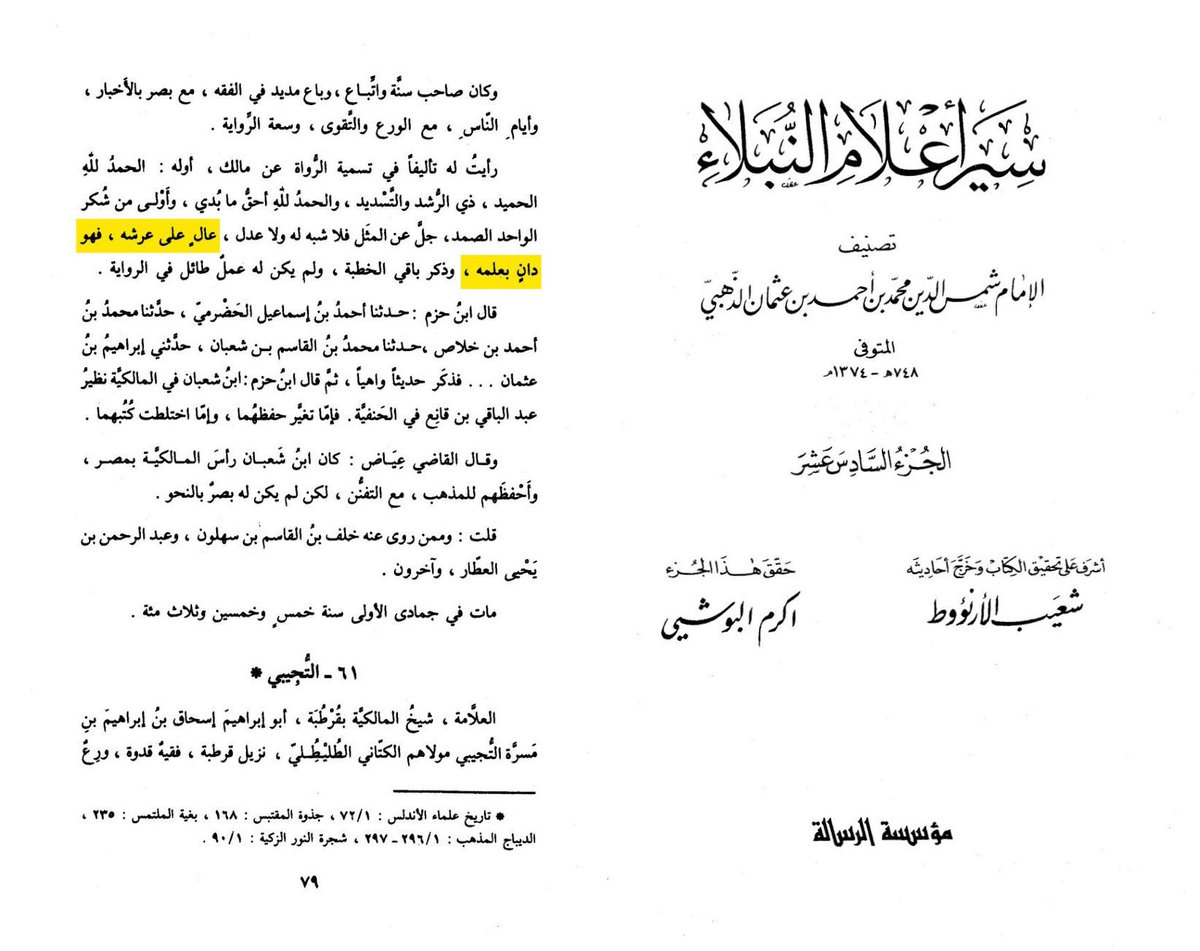 سِيَر أَعْلَامِ النُّبَلَاءِ
تصنيف
الإمام شمس الدين محمد بن أحمد بن عثمان الذهبيّ
المتوفى
٧٤٨هـ - ١٣٧٤م
الجُزءُ السَّادِسَ عَشَرَ
أشرف على تحقيق الكتاب وخرّج أحاديثه
شعَيب الأرنؤوط
حَقّق هٰذا الجُزء
أكرم البوشيي
مؤسسة الرسالة
وكان صاحب سنَّة واتِّباع ، وباع مديد في الفقه ، مع بصر بالأَخبار ،
وأيامِ النّاسِ ، مع الورع والتَّقوى ، وسعة الرِّواية .
رأيتُ له تأليفاً في تسمية الرُّواة عن مالك ، أوله : الحمدُ للّهِ
الحميد ، ذي الرُّشد والتَّسْديد ، والحمدُ للّهِ أحقُّ ما بُدي ، وأَوْلى من شُكر
الواحد الصمد، جلَّ عن المثَل فلا شبه له ولا عدل ، عالٍ على عرشه ، فهو
دانٍ بعلمه ، وذكر باقي الخطبة ، ولم يكن له عملٌ طائل في الرواية .
قال ابنُ حزم : حدثنا أحمدُ بنُ إسماعيل الحَضْرميّ ، حدَّثنا محمدُ بنُ
أحمد بن خلاص ،حدثنا محمدُ بنُ القاسم بن شعبان ، حدَّثني إبراهيمُ بنُ
عثمان . . . فذكَر حديثاً واهياً ، ثمَّ قال ابنُ حزم: ابنُ شعبان في المالكيَّة نظيرُ
عبد الباقي بن قانِع في الحَنفيَّة. فإمّا تغيَّر حفظهُما ، وإمّا اختلطت كُتُبهما .
وقال القاضي عِيَاض : كان ابنُ شَعبان رأسَ المالكيَّة بمصر ،
وأَحْفظَهم للمذهب ، مع التفنُّن ، لكن لم يكن له بصرٌ بالنحو .
قلت : وممن روى عنه خلف بنُ القاسم بن سهلون ، وعبد الرحمن بن
يَحْيى العطّار ، وآخرون .
مات في جمادى الأولى سنة خمسٍ وخمسين وثلاث مئة .
٦١ - التُّجِيبي *
العلاَّمة ، شيخُ المالكيَّة بقُرْطُبَة ، أبو إبراهيمَ إسحاق بنُ إبراهيمَ بنِ
مَسرَّة التُّجيبي مولاهم الكتّاني الطُّلَيْطِليّ ، نزيل قرطبة ، فقيهٌ قدوة ، ورِعٌ
* تاريخ علماء الأندلس : ٧٢/١ ، جذوة المقتبس : ١٦٨ ، بغية الملتمس : ٢٣٥ ،
الديباج المذهب : ٢٩٦/١ - ٢٩٧ ، شجرة النور الزكية : ٩٠/١ .
٧٩